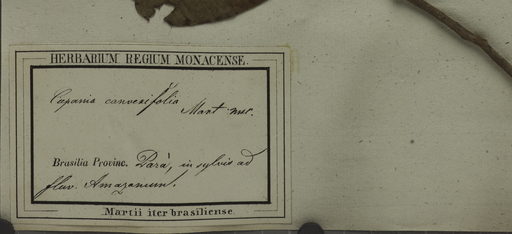 HERBARIUM REGIUM MONACENSE.
Cupania convexifólia
Mart. msc.
Brasilia Provinc. Pará, in sylvis ad
fluv. Amazonum.
Martii iter brasiliense.